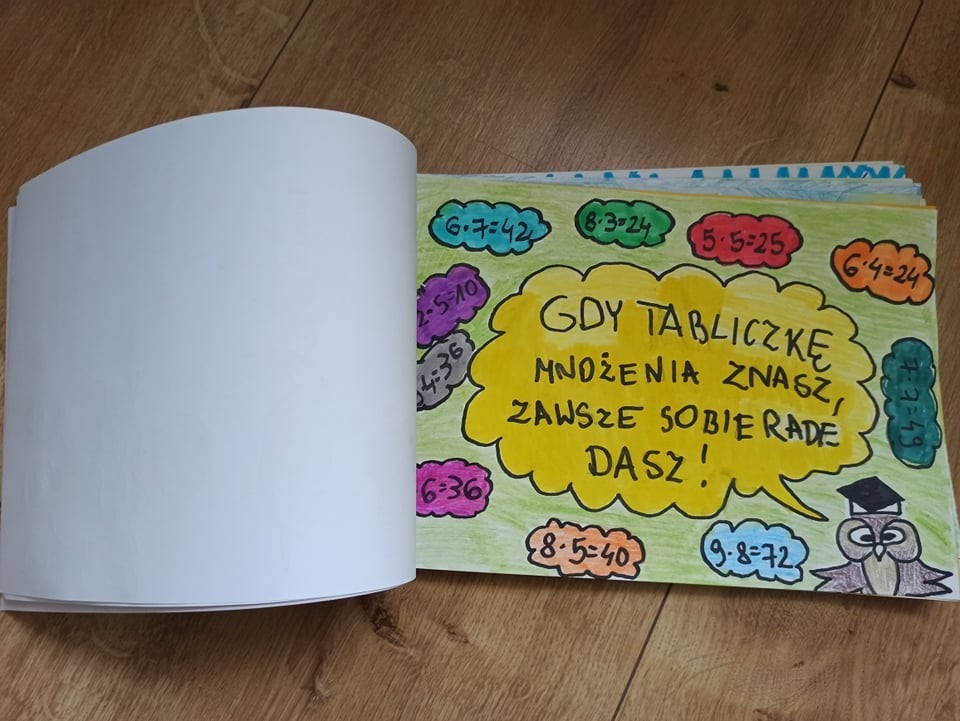 6·7=42
8·3=24
5·5=25
6·4=24
2·5=10
4=36
GDY TABLICZKĘ
MNOŻENIA ZNASZ,
ZAWSZE SOBIE RADĘ
DASZ!
7·7=49
6=36
8·5=40
9·8=72